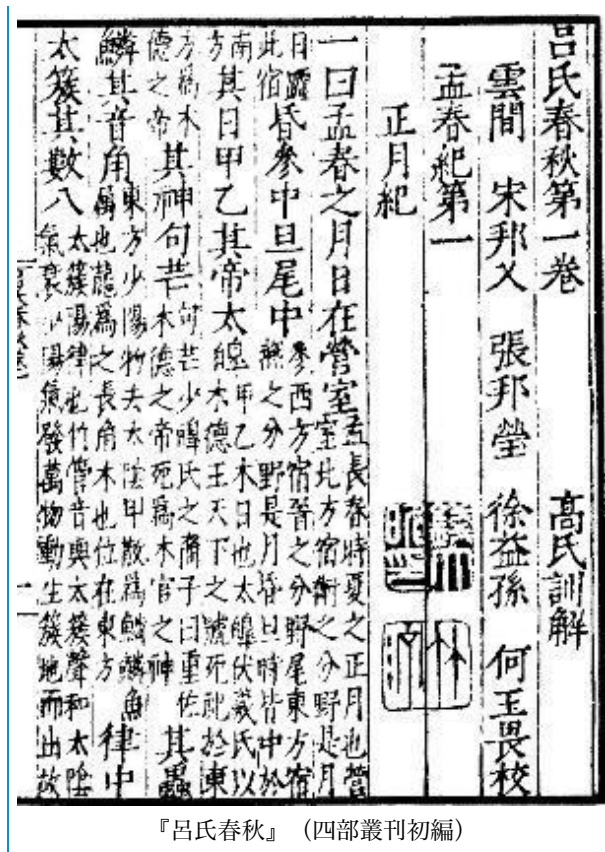 呂氏春秋第一卷　高氏訓解
雲間　宋邦乂　張邦瑩　徐益孫　何玉畏校
孟春紀第一
正月紀
一曰孟春之月日在營室孟長春時夏之正月也營室北方宿衞之分野是月
日躔此宿昏參中旦尾中參西方宿晉之分野尾東方宿燕之分野是月昏旦時皆中於
南方其日甲乙其帝太皥甲乙木日也太皥伏羲氏以木德王天下之號死祀於東
方爲木德之帝其神句芒句芒少皥氏之裔子曰重佐木德之帝死爲木官之神其蟲
鱗其音角東方少陽物去太陰甲散爲鱗鱗魚屬也龍爲之長角木也位在東方律中
太蔟其數八太蔟陽律也竹管音與太蔟聲和太陰氣衰少陽氣發萬物動生蔟地而出故
『呂氏春秋』（四部叢刊初編）